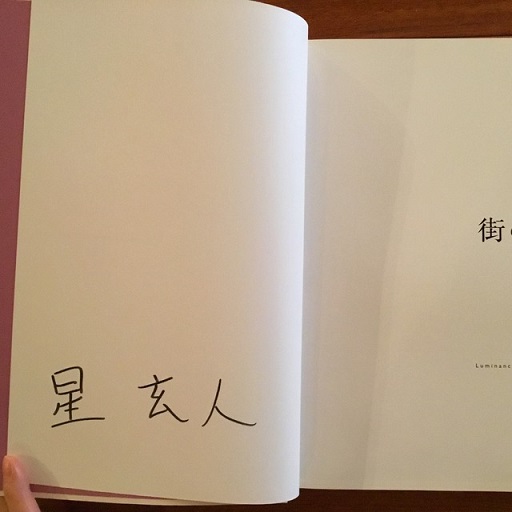 星 玄人
街
Luminanc